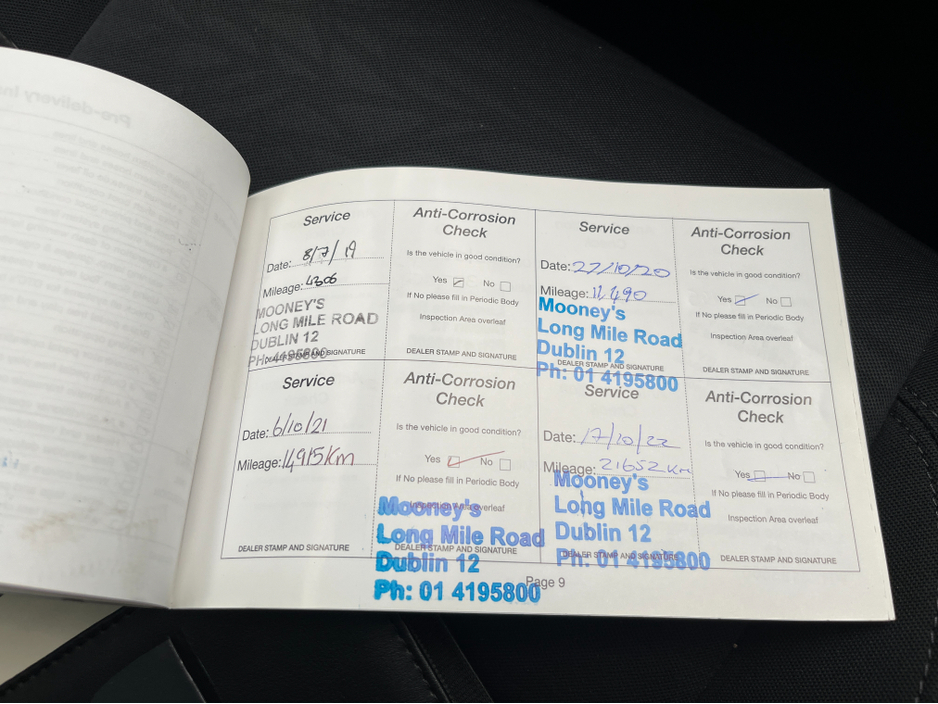 Pre-delivery
Service
Date: 8/7/19
Mileage: 4306
MOONEY'S
LONG MILE ROAD
DUBLIN 12
PH: 4195800
DEALER STAMP AND SIGNATURE
Anti-Corrosion
Check
Is the vehicle in good condition?
Yes No
If No please fill in Periodic Body
Inspection Area overleaf
DEALER STAMP AND SIGNATURE
Service
Date: 27/10/20
Mileage: 11,490
Mooney's
Long Mile Road
Dublin 12
DEALER STAMP AND SIGNATURE
Ph: 01 4195800
Anti-Corrosion
Check
Is the vehicle in good condition?
Yes No
If No please fill in Periodic Body
Inspection Area overleaf
DEALER STAMP AND SIGNATURE
Service
Date: 6/10/21
Mileage: 14915 Km
DEALER STAMP AND SIGNATURE
Anti-Corrosion
Check
Is the vehicle in good condition?
Yes No
If No please fill in Periodic Body
Inspection Area overleaf
Mooney's
Long Mile Road
DEALER STAMP AND SIGNATURE
Dublin 12
Ph: 01 4195800
Service
Date: 17/10/22
Mileage: 21652 Km
Mooney's
Long Mile Road
Dublin 12
DEALER STAMP AND SIGNATURE
Ph: 01 4195800
Anti-Corrosion
Check
Is the vehicle in good condition?
Yes No
If No please fill in Periodic Body
Inspection Area overleaf
DEALER STAMP AND SIGNATURE
Page 9